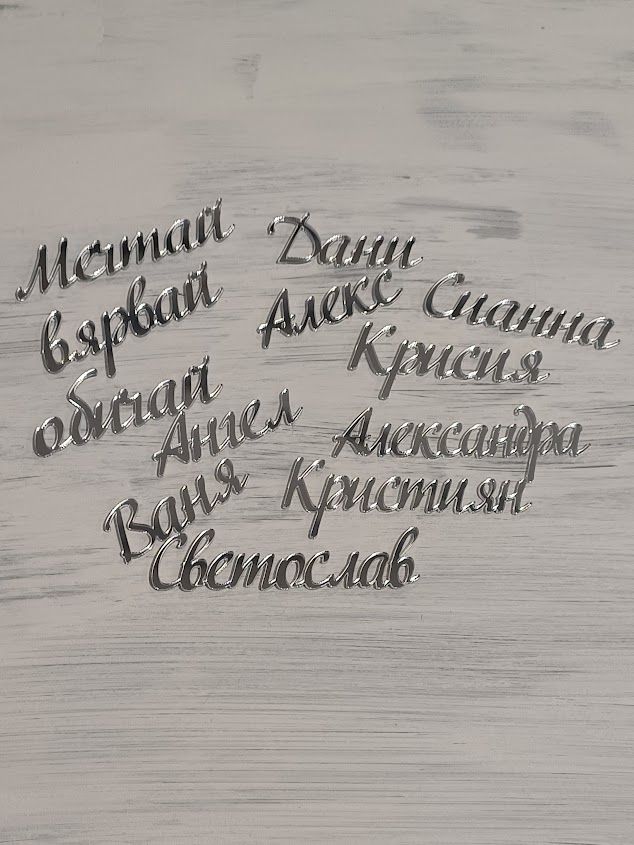 Мечтай
Дани
вярвай
Алекс
Сианна
Крисия
обичай
Ангел
Александра
Ваня
Кристиян
Светослав